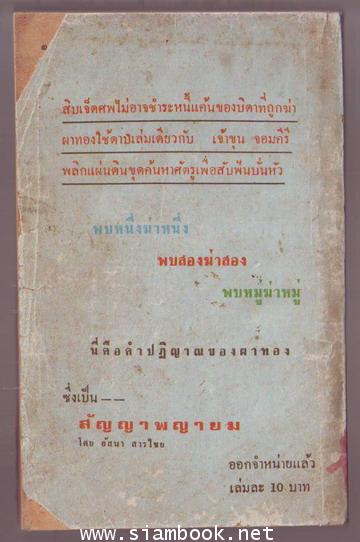 สิบเจ็ดศพไม่อาจชำระหนี้แค้นของบิดาที่ถูกฆ่า
ผาทองใช้ดาบเล่มเดียวกับ เจ้าขุน จอมคีรี
พลิกแผ่นดินขุดค้นหาศัตรูเพื่อสับฟันบั่นหัว
พบหนึ่งฆ่าหนึ่ง
พบสองฆ่าสอง
พบหมู่ฆ่าหมู่
นี่คือคำปฏิญาณของผาทอง
ซึ่งเป็น——
สัญญาพญายม
โดย อัสนา สารไชย
ออกจำหน่ายแล้ว
เล่มละ 10 บาท
www.siambook.net